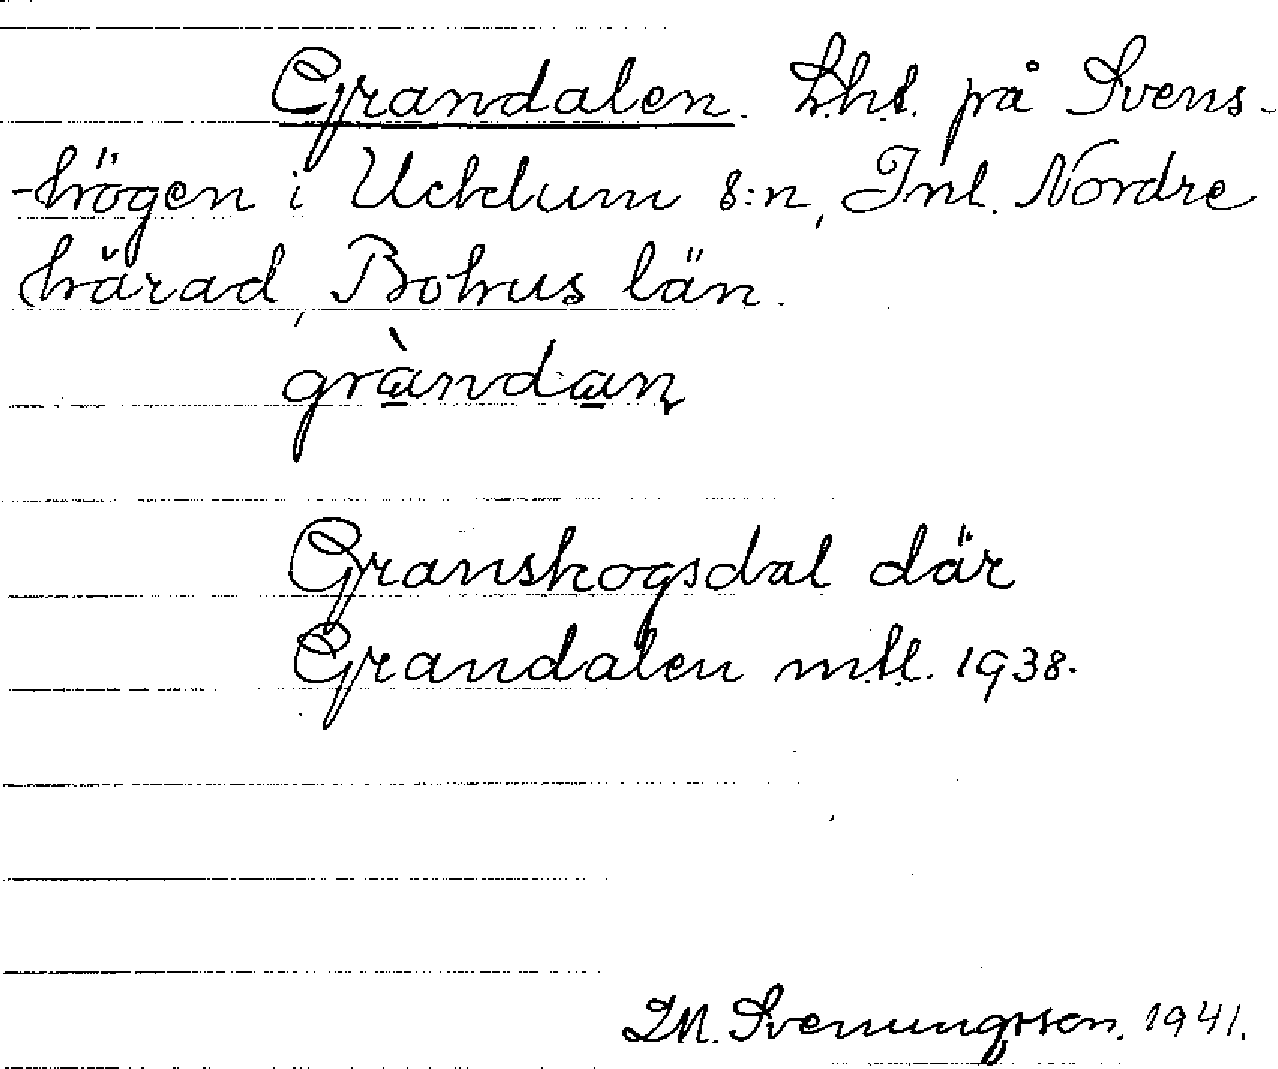 Grandalen. Lht. på Svens-
-högen i Ucklum s:n, Inl. Nordre
härad, Bohus län.
gràndan
Granskogsdal där
Grandalen mtl. 1938.
Svenungsson. 1941.